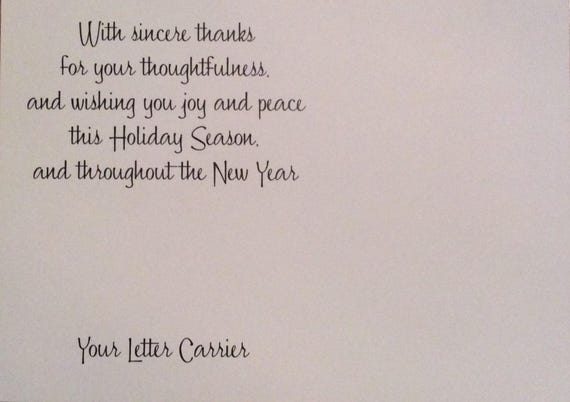 With sincere thanks
for your thoughtfulness,
and wishing you joy and peace
this Holiday Season,
and throughout the New Year
Your Letter Carrier